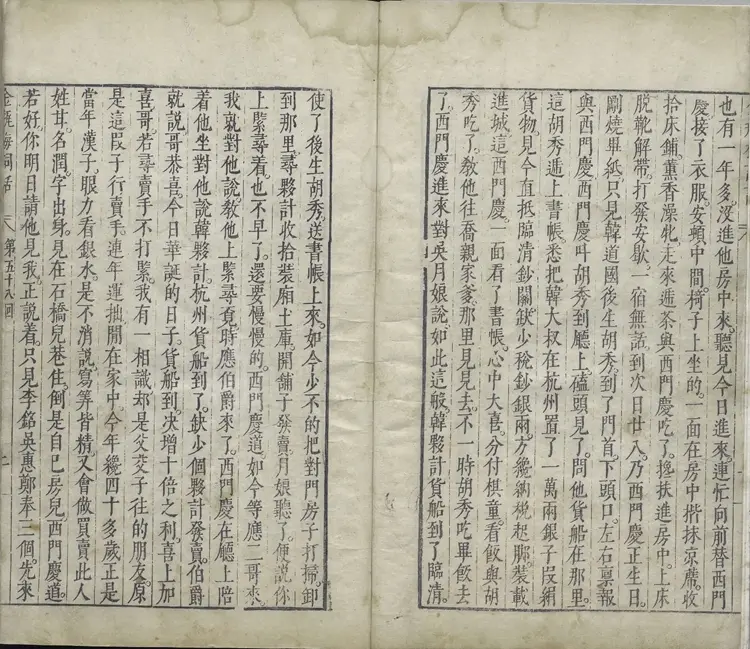 也有一年多沒進他房中來聽見今日進來連忙向前替西門
慶接了衣服安頓中間椅子上坐的一面在房中揩抹凉蓆收
拾床鋪薰香澡牝走來遞茶與西門慶吃了攙扶進房中上床
脫靴解帶打發安歇一宿無話到次日廿八乃西門慶正生日
剛燒畢紙只見韓道國後生胡秀到了門首下頭口左右禀報
與西門慶西門慶叫胡秀到廳上磕頭見了問他貨船在那里
這胡秀遞上書帳悉把韓大叔在杭州置了一萬兩銀子叚絹
貨物見今直抵臨清鈔關缺少稅鈔銀兩方纔納稅起脚裝載
進城這西門慶一面看了書帳心中大喜分付棋童看飯與胡
秀吃了教他往喬親家爹那里見見去不一時胡秀吃畢飯去
了西門慶進來對吳月娘說如此這般韓夥計貨船到了臨清
使了後生胡秀送書帳上來如今少不的把對門房子打掃卸
到那里尋夥計收拾裝廂土庫開舖子發賣月娘聽了便說你
上緊尋着也不早了還要慢慢的西門慶道如今等應二哥來
我就對他說教他上緊尋覓時應伯爵來了西門慶在廳上陪
着他坐對他說韓夥計杭州貨船到了缺少個夥計發賣伯爵
就說哥恭喜今日華誕的日子貨船到决增十倍之利喜上加
喜哥若尋賣手不打緊我有一相識却是父交子往的朋友原
是這叚子行賣手連年運拙閒在家中今年纔四十多歲正是
當年漢子眼力看銀水是不消說寫筭皆精又會做買賣此人
姓甘名潤字出身見在石橋兒巷住倒是自巳房兒西門慶道
若好你明日請他見我正說着只見李銘吳惠鄭奉三個先來
金瓶梅詞話 第五十八回